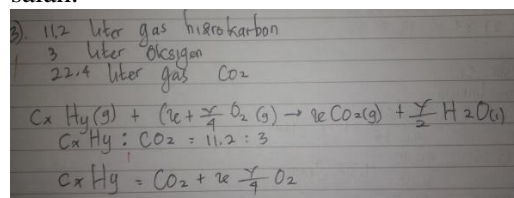 salah.
3). 11,2 liter gas hidrokarbon
3 liter oksigen
22.4 liter gas CO2
Cx Hy(g) + (x + y/4 O2 (g) → x CO2(g) + y/2 H2O(l)
Cx Hy : CO2 = 11.2 : 3
Cx Hy = CO2 + x y/4 O2